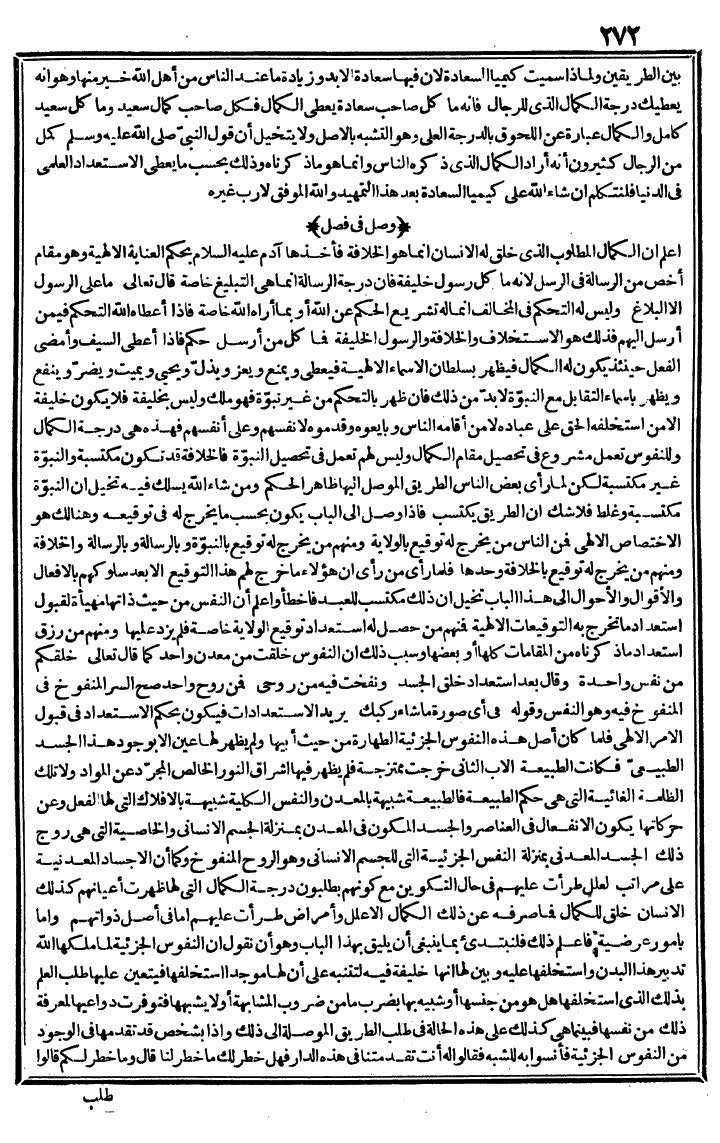 ٢٧٢
بين الطريقين ولماذا سميت كيمياء السعادة لان فيها سعادة الابد وزيادة ما عند الناس من أهل الله خير منها وهو انه
يعطيك درجة الكمال الذى للرجال فانه ما كل صاحب سعادة يعطى الكمال فكل صاحب كمال سعيد وما كل سعيد
كامل والكمال عبارة عن اللحوق بالدرجة العلى وهو التشبه بالاصل ولا يتخيل أن قول النبىّ صلى الله عليه وسلم كمل
من الرجال كثيرون أنه أراد الكمال الذى ذكره الناس وانما هو ماذكرناه وذلك بحسب ما يعطى الاستعداد العلمى
فى الدنيا فلنتكلم ان شاء الله على كيمياء السعادة بعد هذا التمهيد والله الموفق لارب غيره
﴿وصل فى فصل﴾
اعلم ان الكمال المطلوب الذى خلق له الانسان انما هو الخلافة فأخذها آدم عليه السلام بحكم العناية الالهية وهو مقام
أخص من الرسالة فى الرسل لانه ما كل رسول خليفة فان درجة الرسالة انما هى التبليغ خاصة قال تعالى ما على الرسول
الا البلاغ وليس له التحكم فى المخالف انما له تشريع الحكم عن الله أو بما أراه الله خاصة فاذا أعطاه الله التحكم فيمن
أرسل اليهم فذلك هو الاستخلاف والخلافة والرسول الخليفة فما كل من أرسل حكم فاذا أعطى السيف وأمضى
الفعل حينئذ يكون له الكمال فيظهر بسلطان الاسماء الالهية فيعطى ويمنع ويعز ويذلّ ويحيى ويميت ويضرّ وينفع
ويظهر باسماء التقابل مع النبوّة لابدّ من ذلك فان ظهر بالتحكم من غير نبوّة فهو ملك وليس بخليفة فلا يكون خليفة
الا من استخلفه الحق على عباده لا من أقامه الناس وبايعوه وقدموه لانفسهم وعلى أنفسهم فهذه هى درجة الكمال
وللنفوس تعمل مشروع فى تحصيل مقام الكمال وليس لهم تعمل فى تحصيل النبوّة فالخلافة قد تكون مكتسبة والنبوّة
غير مكتسبة لكن لما رأى بعض الناس الطريق الموصل اليها ظاهر الحكم ومن شاء الله يسلك فيه تخيل ان النبوّة
مكتسبة وغلط فلا شك ان الطريق يكتسب فاذا وصل الى الباب يكون بحسب ما يخرج له فى توقيعه وهنالك هو
الاختصاص الالهى فمن الناس من يخرج له توقيع بالولاية ومنهم من يخرج له توقيع بالنبوّة وبالرسالة وبالرسالة والخلافة
ومنهم من يخرج له توقيع بالخلافة وحدها فلما رأى من رأى ان هؤلاء ما خرج لهم هذا التوقيع الا بعد سلوكهم بالافعال
والأقوال والأحوال الى هذا الباب تخيل ان ذلك مكتسب للعبد فاخطأ واعلم أن النفس من حيث ذاتها مهيأة لقبول
استعداد ما تخرج به التوقيعات الالهية فمنهم من حصل له استعداد توقيع الولاية خاصة فلم يزد عليها ومنهم من رزق
استعداد ما ذكرناه من المقامات كلها أو بعضها وسبب ذلك ان النفوس خلقت من معدن واحد كما قال تعالى خلقكم
من نفس واحدة وقال بعد استعداد خلق الجسد ونفخت فيه من روحى فمن روح واحد صح السر المنفوخ فى
المنفوخ فيه وهو النفس وقوله فى أى صورة ما شاء ركبك يريد الاستعدادات فيكون بحكم الاستعداد فى قبول
الامر الالهى فلما كان أصل هذه النفوس الجزئية الطهارة من حيث أبيها ولم يظهر لها عين الا بوجود هذا الجسد
الطبيعىّ فكانت الطبيعة الاب الثانى خرجت ممتزجة فلم يظهر فيها اشراق النور الخالص المجرّد عن المواد ولا تلك
الظلمة الغائية التى هى حكم الطبيعة فالطبيعة شبيهة بالمعدن والنفس الكلية شبيهة بالافلاك التى لها لفعل وعن
حركاتها يكون الانفعال فى العناصر والجسد المكون فى المعدن بمنزلة الجسم الانسانى والخاصية التى هى روح
ذلك الجسد المعدنى بمنزلة النفس الجزئية التى للجسم الانسانى وهو الروح المنفوخ وكما أن الاجساد المعدنية
على مراتب لعلل طرأت عليهم فى حال التكوين مع كونهم يطلبون درجة الكمال التى لها ظهرت أعيانهم كذلك
الانسان خلق للكمال فما صرفه عن ذلك الكمال الاعلل وأمراض طرأت عليهم اما فى أصل ذواتهم واما
بامور عرضية فاعلم ذلك فلنبتدئ بما ينبغى أن يليق بهذا الباب وهو أن نقول ان النفوس الجزئية لما ملكها الله
تدبير هذا البدن واستخلفها عليه وبين لها انها خليفة فيه لتتنبه على أن لها موجدا استخلفها فيتعين عليها طلب العلم
بذلك الذى استخلفها هل هو من جنسها أو شبيه بها بضرب ما من ضروب المشابهة أولا يشبهها فتوفرت دواعيها لمعرفة
ذلك من نفسها فبينما هى كذلك على هذه الحالة فى طلب الطريق الموصلة الى ذلك واذا بشخص قد تقدمها فى الوجود
من النفوس الجزئية فأنسوا به للشبه فقالوا له أنت تقدمتنا فى هذه الدار فهل خطر لك ما خطر لنا قال وما خطر لكم قالوا
طلب